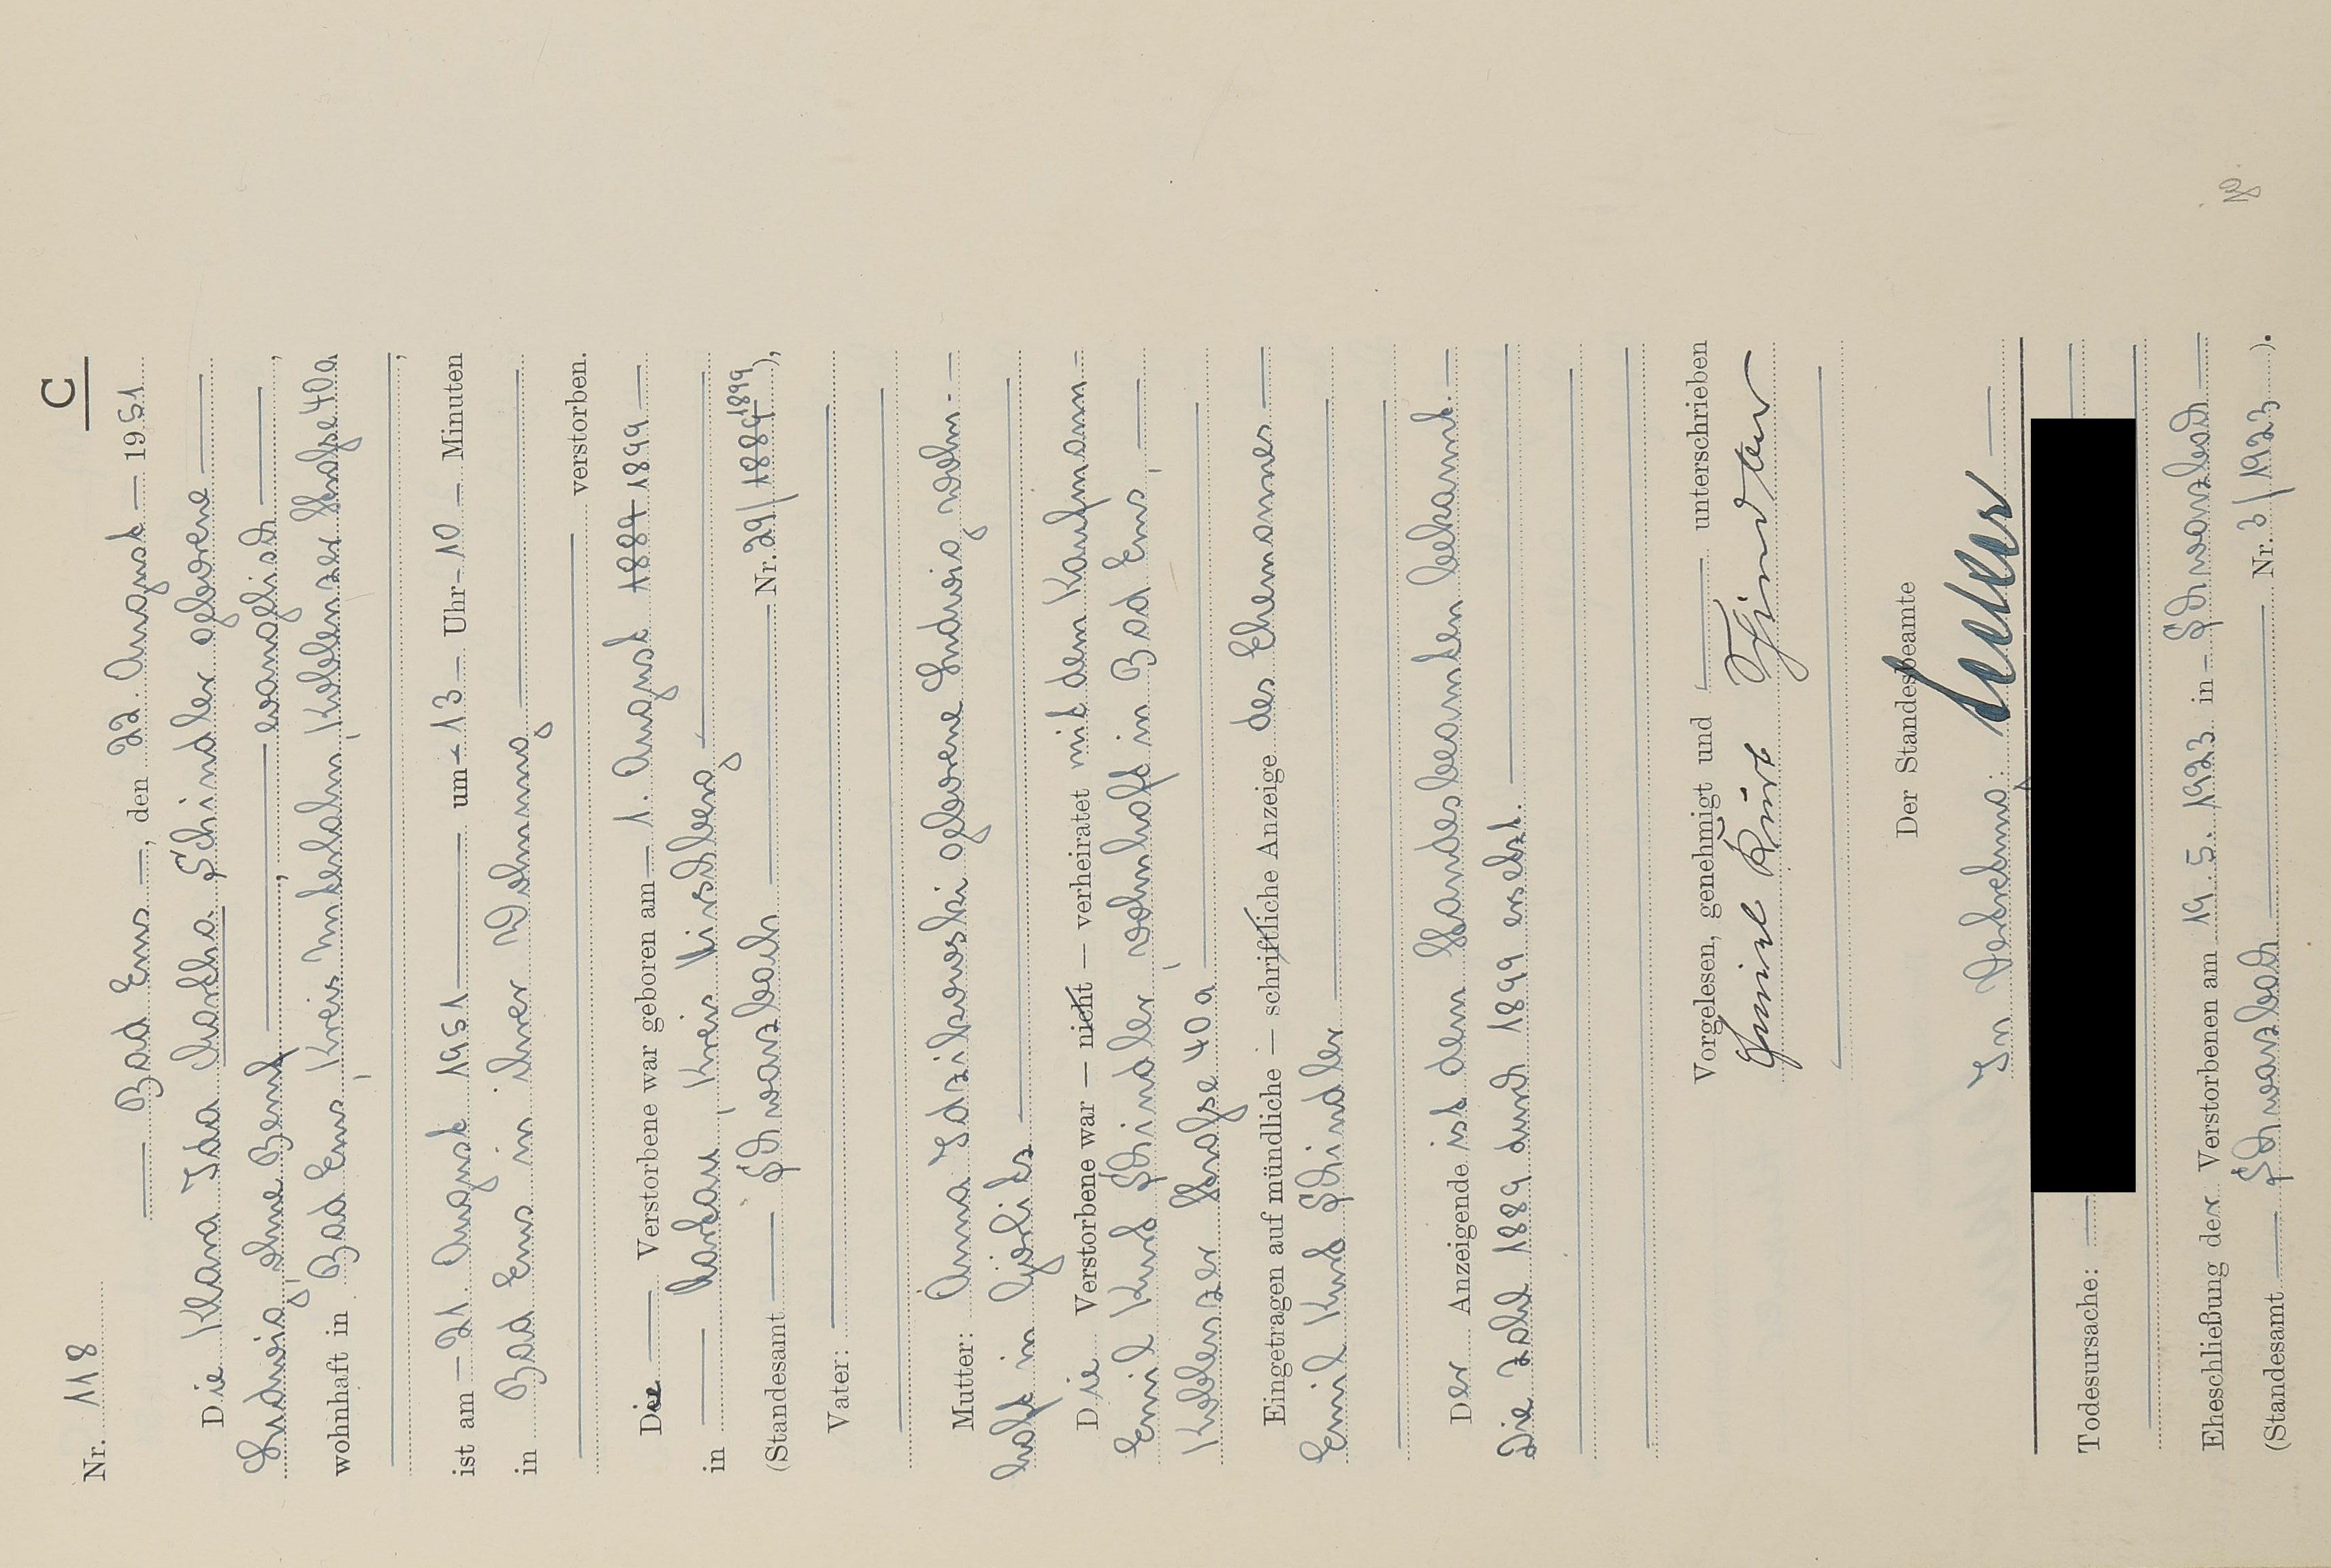 C
Nr. 118
Bad Ems, den 22. August 1951
Die Klara Ida Martha Schindler geborene
Ludwig, ohne Beruf, evangelisch,
wohnhaft in Bad Ems, Kreis Unterlahn, Koblenzer Straße 40a,
ist am 21. August 1951 um 13 Uhr 10 Minuten
in Bad Ems in ihrer Wohnung
verstorben.
Die Verstorbene war geboren am 1. August 1889 1899
in Warkau, Kreis Hirschberg
(Standesamt Schwarzbach Nr. 29/1889 1899),
Vater:
Mutter: Anna Idzikowski geborene Ludwig, wohn-
haft in Görlitz
Die Verstorbene war — nicht — verheiratet mit dem Kaufmann
Emil Kurt Schindler, wohnhaft in Bad Ems,
Koblenzer Straße 40a
Eingetragen auf mündliche — schriftliche Anzeige des Ehemannes
Emil Kurt Schindler
Der Anzeigende ist dem Standesbeamten bekannt.
Die Zahl 1889 durch 1899 ersetzt.
Vorgelesen, genehmigt und unterschrieben
Emil Kurt Schindler
Der Standesbeamte
In Vertretung:
Todesursache:
Eheschließung der Verstorbenen am 19.5.1923 in Schwarzbach
(Standesamt Schwarzbach Nr. 3/1923).